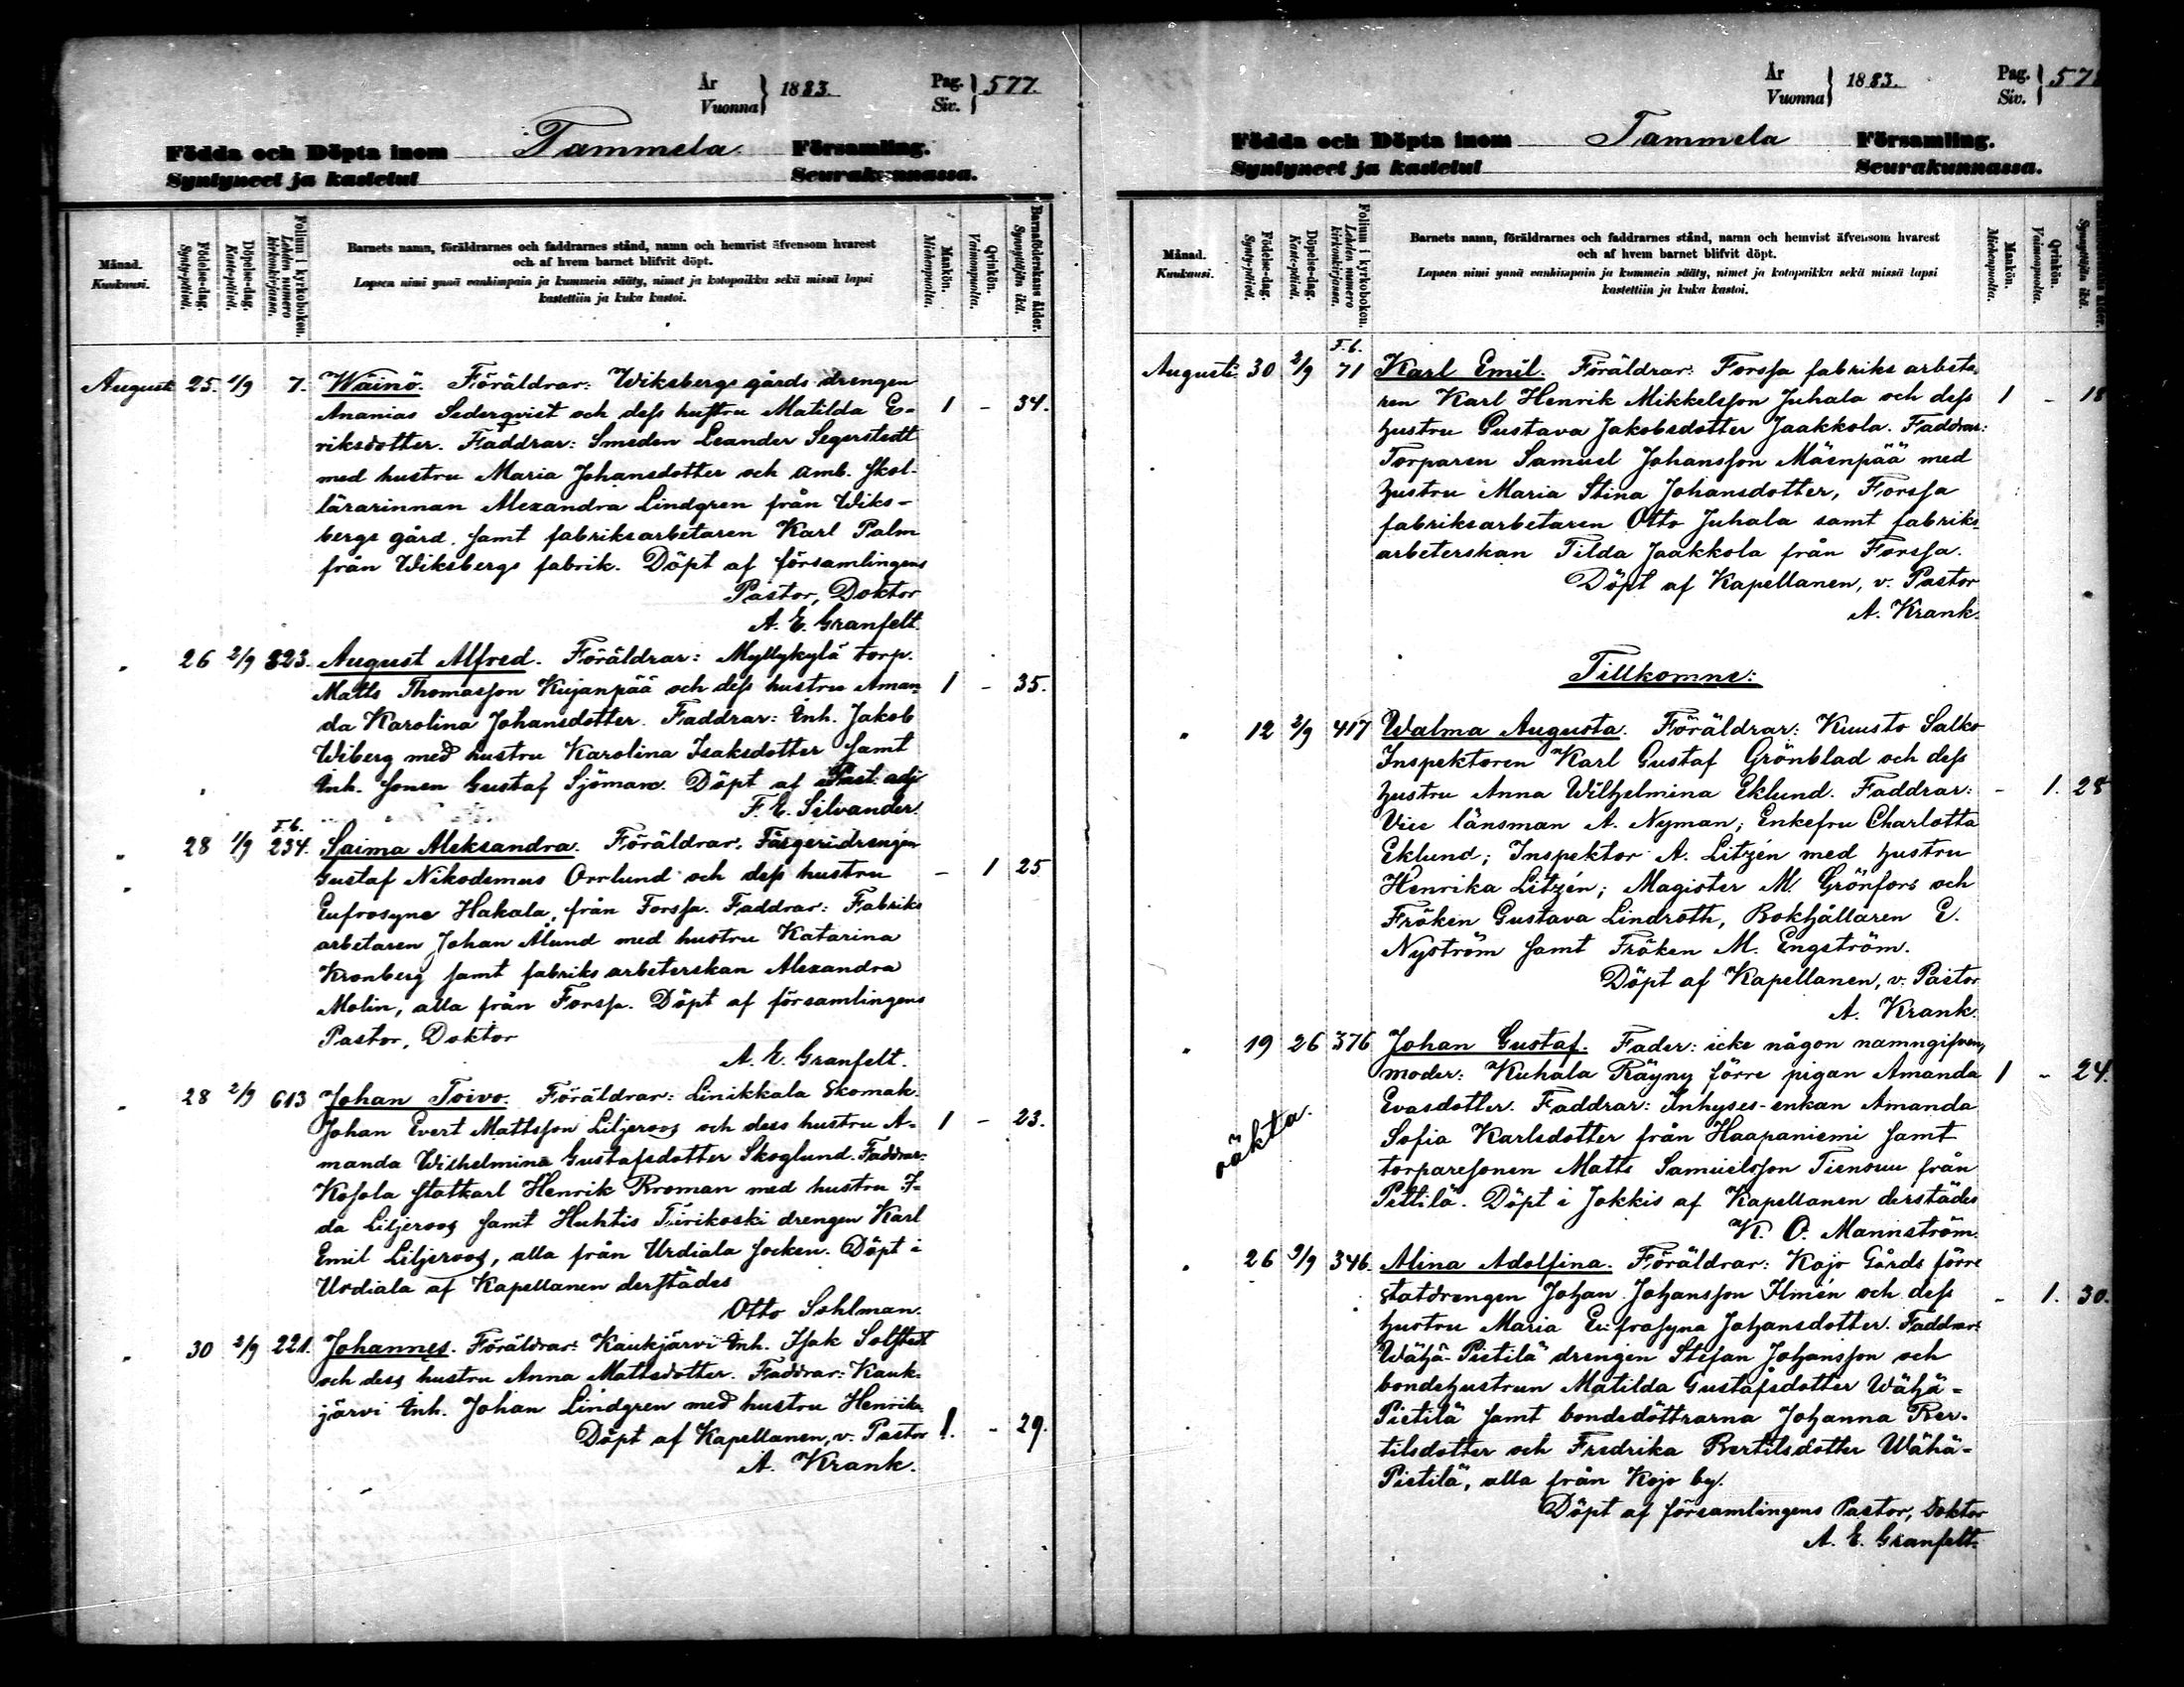 År
Vuonna } 1883. Pag.
Siv. } 577.
Födda och Döpta inom Tammela Församling.
Syntyneet ja kastetut Seurakunnassa.
Månad.
Kuukausi.
Födelse-dag.
Synty-päivä.
Döpelse-dag.
Kaste-päivä.
Folium i kyrkoboken.
Lehden numero kirkonkirjassa.
Barnets namn, föräldrarnes och faddrarnes stånd, namn och hemvist äfvensom hvarest
och af hvem barnet blifvit döpt.
Lapsen nimi ynnä vanhimpain ja kummein sääty, nimet ja kotopaikka sekä missä lapsi
kastettiin ja kuka kastoi.
Mankön.
Miehenpuolta.
Qvinkön.
Vaimonpuolta.
Barnaföderskans ålder.
Synnyttäjän ikä.
Augusti 25. 1/9 7. Wäinö. Föräldrar: Wiksbergs gårds drengen
Ananias Sederqvist och dess hustru Matilda E- 1 - 34.
riksdotter. Faddrar: Smeden Leander Segerstedt
med hustru Maria Johansdotter och amb. skol-
lärarinnan Alexandra Lindgren från Wiks-
bergs gård samt fabriksarbetaren Karl Palm
från Wiksbergs fabrik. Döpt af församlingens
Pastor, Doktor
A. E. Granfelt.
" 26 2/9 323. August Alfred. Föräldrar: Myllykylä torp.
Matts Thomasson Kujanpää och dess hustru Aman- 1 - 35.
da Karolina Johansdotter. Faddrar: Inh. Jakob
Wiberg med hustru Karolina Isaksdotter samt
Inh. sonen Gustaf Sjöman. Döpt af Past. adj
F. E. Silvander.
F.b.
" 28 1/9 234. Saima Aleksandra. Föräldrar: Färgeridrengen
Gustaf Nikodemus Orrlund och dess hustru - 1 25
Eufrosyne Hakala, från Forssa. Faddrar: Fabriks
arbetaren Johan Ålund med hustru Katarina
Kronberg samt fabriks arbeterskan Alexandra
Molin, alla från Forssa. Döpt af församlingens
Pastor, Doktor
A. E. Granfelt.
" 28 2/9 613 Johan Toivo. Föräldrar: Linikkala Skomak.
Johan Evert Mattsson Liljeroos och dess hustru A- 1 - 23.
manda Wilhelmina Gustafsdotter Skoglund. Faddrar:
Kosola statkarl Henrik Broman med hustru I-
da Liljeroos samt Huhtis drengen Karl
Emil Liljeroos, alla från Urdiala socken. Döpt i
Urdiala af Kapellanen derstädes
Otto Sohlman.
" 30 2/9 221. Johannes. Föräldrar: Kaukjärvi Inh. Isak Solstedt
och dess hustru Anna Mattsdotter. Faddrar: Kauk-
järvi Inh. Johan Lindgren med hustru Henrika.
Döpt af Kapellanen, v. Pastor 1. - 29.
A. Krank.
År
Vuonna } 1883. Pag.
Siv. } 57
Födda och Döpta inom Tammela Församling.
Syntyneet ja kastetut Seurakunnassa.
Månad.
Kuukausi.
Födelse-dag.
Synty-päivä.
Döpelse-dag.
Kaste-päivä.
Folium i kyrkoboken.
Lehden numero kirkonkirjassa.
Barnets namn, föräldrarnes och faddrarnes stånd, namn och hemvist äfvensom hvarest
och af hvem barnet blifvit döpt.
Lapsen nimi ynnä vanhimpain ja kummein sääty, nimet ja kotopaikka sekä missä lapsi
kastettiin ja kuka kastoi.
Mankön.
Miehenpuolta.
Qvinkön.
Vaimonpuolta.
Synnyttäjän ikä.
F.b.
Augusti 30 2/9 71 Karl Emil. Föräldrar: Forssa fabriks arbeta-
ren Karl Henrik Mikkelsson Juhala och dess 1 - 18
hustru Gustava Jakobsdotter Jaakkola. Faddrar:
Torparen Samuel Johansson Mäenpää med
hustru Maria Stina Johansdotter, Forssa
fabriksarbetaren Otto Juhala samt fabriks-
arbeterskan Tilda Jaakkola från Forssa.
Döpt af Kapellanen, v. Pastor
A. Krank.
Tillkomne:
" 12 2/9 417 Walma Augusta. Föräldrar: Kuusto Salko
Inspektoren Karl Gustaf Grönblad och dess
hustru Anna Wilhelmina Eklund. Faddrar: - 1. 28
Vice länsman A. Nyman; Enkefru Charlotta
Eklund; Inspektor A. Litzén med hustru
Henrika Litzén; Magister M. Grönfors och
Fröken Gustava Lindroth, Bokhållaren E.
Nyström samt Fröken M. Engström.
Döpt af Kapellanen, v. Pastor
A. Krank.
" 19 26 376 Johan Gustaf. Fader: icke någon namngifven,
moder: Kuhala Räyny förre pigan Amanda 1 - 24.
oäkta. Evasdotter. Faddrar: Inhyses-enkan Amanda
Sofia Karlsdotter från Haapaniemi samt
torparesonen Matts Samuelsson Tiensuu från
Pittilä. Döpt i Jokkis af Kapellanen derstädes
K. O. Mannström.
" 26 2/9 346. Alina Adolfina. Föräldrar: Kojo Gårds förre
statdrengen Johan Johansson Ilmén och dess - 1. 30.
hustru Maria Eufrosyna Johansdotter. Faddrar:
Wähä-Pietilä drengen Stefan Johansson och
bondehustrun Matilda Gustafsdotter Wähä-
Pietilä samt bondedöttrarna Johanna Ber-
tilsdotter och Fredrika Bertilsdotter Wähä-
Pietilä, alla från Kojo by.
Döpt af församlingens Pastor, Doktor
A. E. Granfelt.